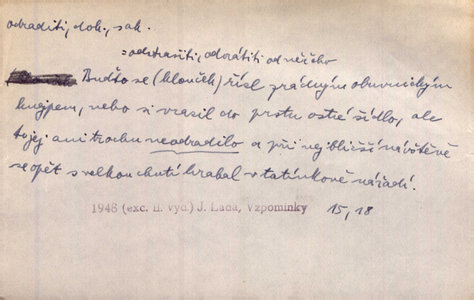 odraditi, dok., sak.
= odstrašiti, odvrátiti od něčeho
Buďto se (klouček) řízl zrádným obuvnickým
knejpem, nebo si vrazil do prstu ostré šídlo, ale
to jej ani trochu neodradilo a při nejbližší návštěvě
se opět s velkou chutí hrabal v tatínkově nářadí.
1948 (exc. II. vyd.) J. Lada, Vzpomínky 15,18